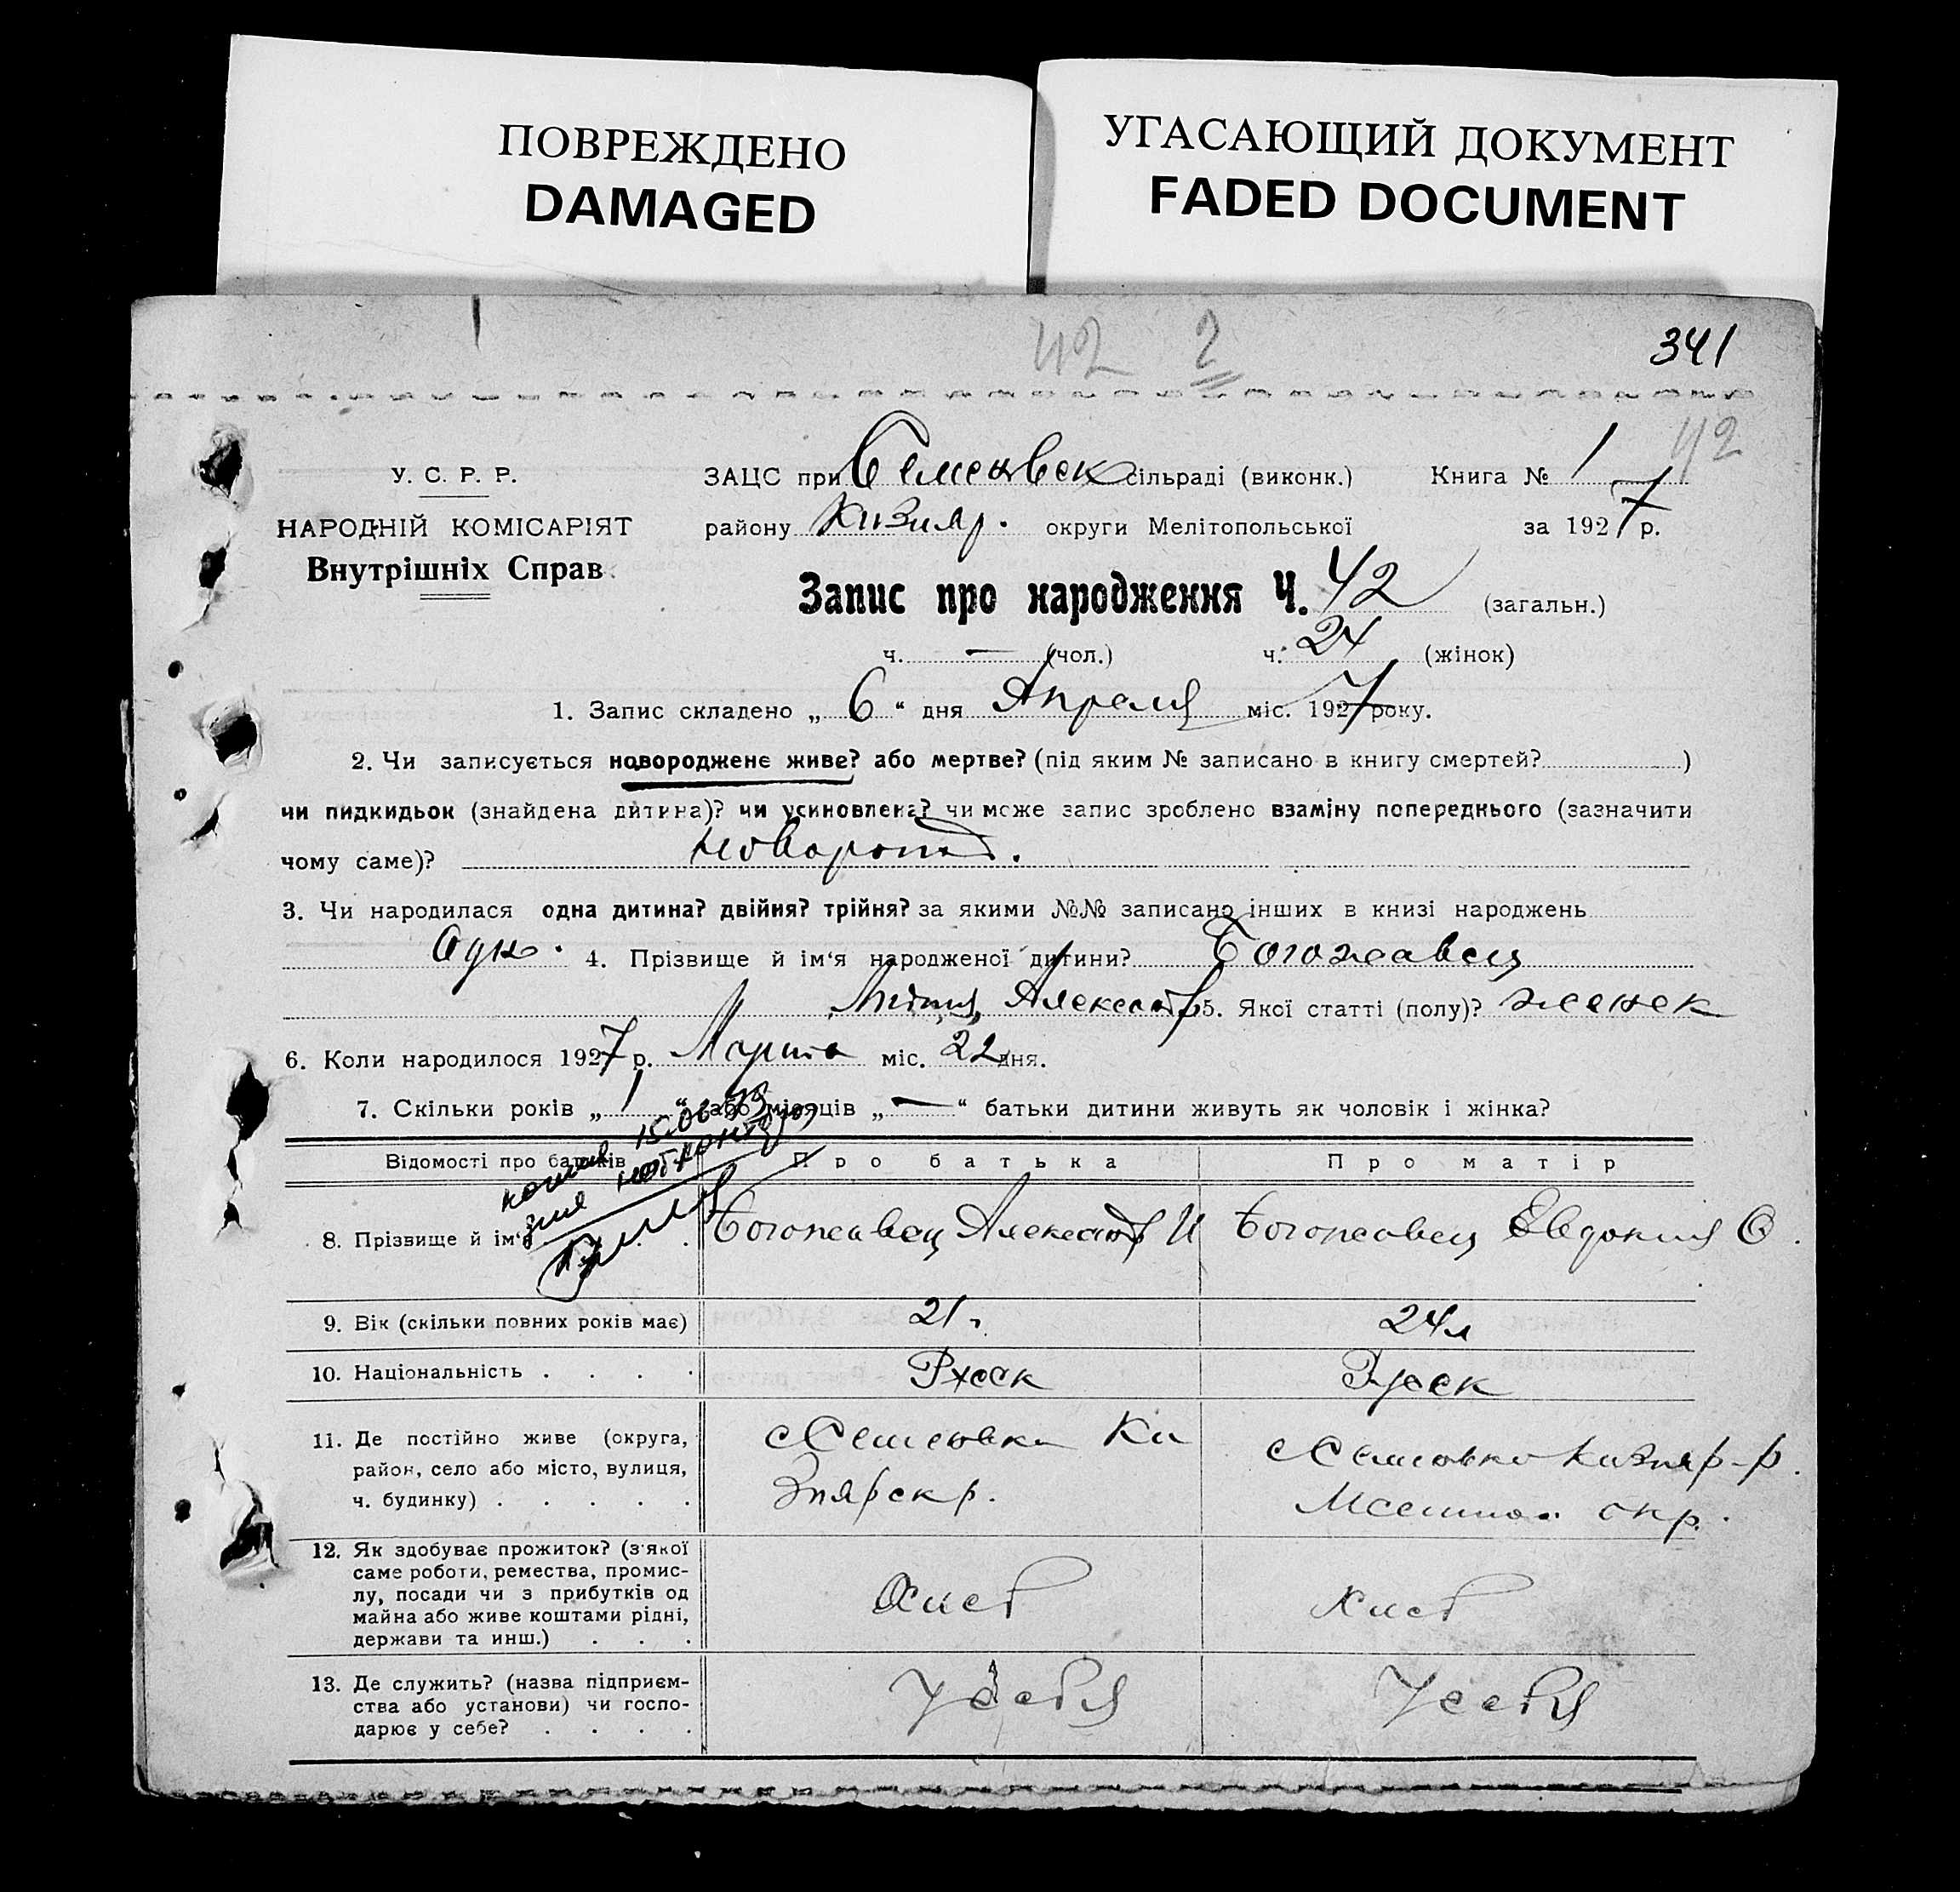 ПОВРЕЖДЕНО
DAMAGED
УГАСАЮЩИЙ ДОКУМЕНТ
FADED DOCUMENT
42 2
341
42
У. С. Р. Р.
НАРОДНІЙ КОМІСАРІЯТ
Внутрішніх Справ.
ЗАЦС при Семеновск сільраді (виконк.) Книга № 1
району Кизияр. округи Мелітопольської за 1927 р.
Запис про народження Ч. 42 (загальн.)
ч. — (чол.) ч. 24 (жінок)
1. Запис складено „ 6 “ дня Апреля міс. 1927 року.
2. Чи записується новороджене живе? або мертве? (під яким № записано в книгу смертей? )
чи пидкидьок (знайдена дитина)? чи усиновлена? чи може запис зроблено взаміну попереднього (зазначити
чому саме)?
3. Чи народилася одна дитина? двійня? трійня? за якими №№ записано інших в книзі народжень
Одн. 4. Прізвище й ім‘я народженої дитини? Богожавец
Александр 5. Якої статті (полу)? женск
6. Коли народилося 1927 р. Марта міс. 22 дня.
7. Скільки років „ 1 “ або місяців „ — “ батьки дитини живуть як чоловік і жінка?
Відомості про батьків Про батька Про матір
8. Прізвище й ім‘я Богожавец Александр И Богожавец Евдокия Ф.
9. Вік (скільки повних років має) 21 г. 24 л
10. Національність . . . . Русск Русск
11. Де постійно живе (округа,
район, село або місто, вулиця,
ч. будинку) . . . . .
с Семеновка Ки
зиярск р.
с Семеновка Кизияр-р.
окр.
12. Як здобуває прожиток? (з'якої
саме роботи, ремества, промис-
лу, посади чи з прибутків од
майна або живе коштами рідні,
держави та инш.) . . .
Хлеб Хлеб
13. Де служить? (назва підприєм-
ства або установи) чи госпо-
дарює у себе? . . . .
У себя У себя